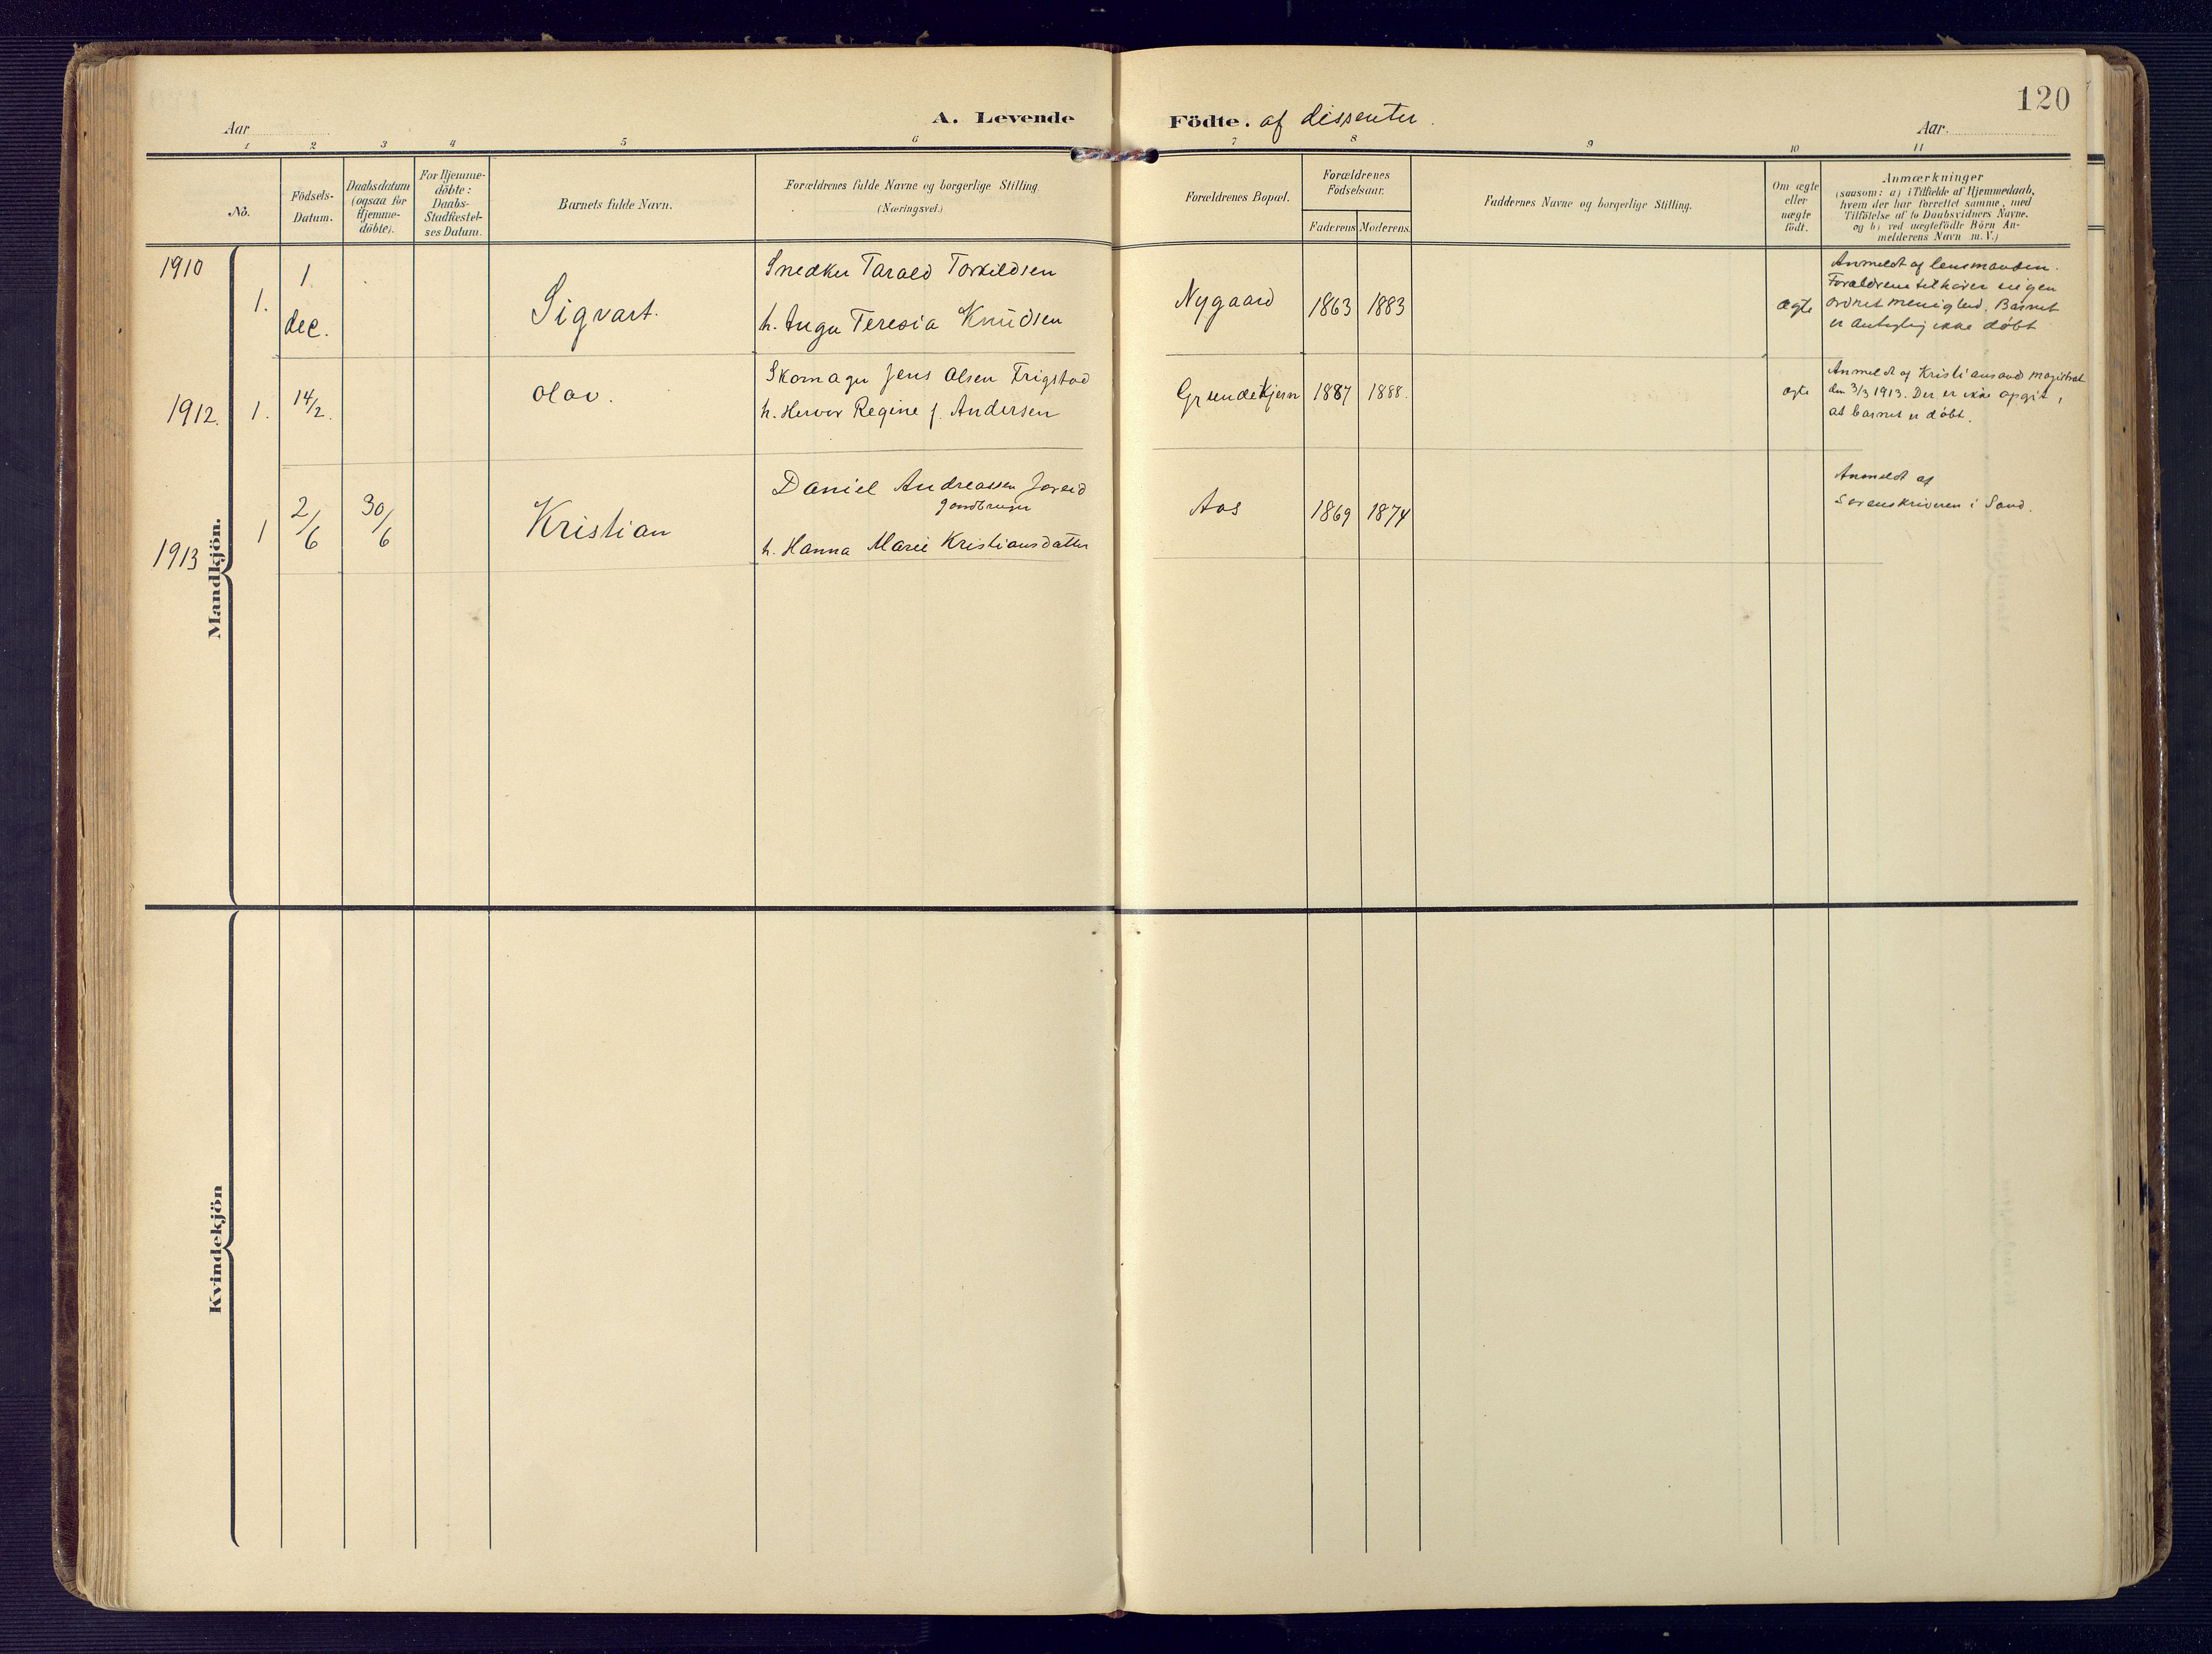 120
Aar
A. Levende
Födte. af dissenter.
Aar.
1 2 3 4 5 6 7 8 9 10 11
No.
Födsels-
Datum.
Daabsdatum
(ogsaa for
Hjemme-
döbte).
For Hjemme-
döbte:
Daabs-
Stadfæstel-
ses Datum.
Barnets fulde Navn.
Forældrenes fulde Navne og borgerlige Stilling.
(Næringsvei.)
Forældrenes Bopæl.
Forældrenes
Födselsaar.
Faderens Moderens
Faddernes Navne og borgerlige Stilling.
Om ægte
eller
uægte
födt.
Anmærkninger
(saasom: a) i Tilfælde af Hjemmedaab,
hvem der har forrettet samme, med
Tilföielse af to Daabsvidners Navne,
og b) ved uægtefödte Börn An-
melderens Navn m.V.)
Mandkjön.
1910
1.
1
dec.
Sigvart.
Snedker Tarald Torkildsen
h. Inga Teresia Knudsen
Nygaard
1863 1883
ægte
Anmeldt af lensmanden.
Forældrene tilhører ingen
ordnet menighed. Barnet
er antagelig ikke døbt
1912.
1.
14/2.
Olav.
Skomager Jens Olsen Frigstad
h. Hervor Regine f. Andersen
Grundekjern
1887 1888.
ægte
Anmeldt af Kristiansand magistrat
den 3/3 1913. Der er ikke opgit,
at barnet er døbt.
1913
1
2/6
30/6
Kristian
Daniel Andreassen
gaardbruger
h. Hanna Marie Kristiansdatter
Aas
1869 1874
Anmeldt af
Sorenskriveren i Sand.
Kvindekjön